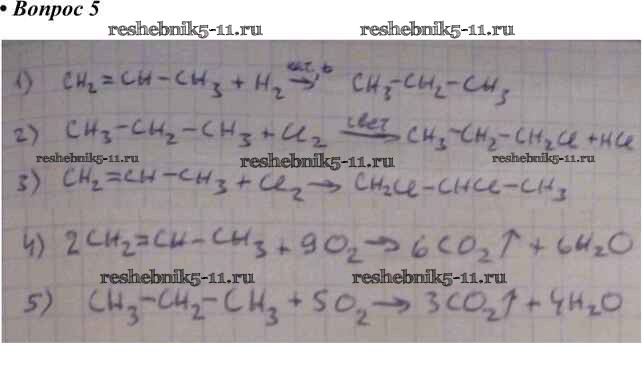 • Вопрос 5
reshebnik5-11.ru reshebnik5-11.ru
1) CH₂=CH-CH₃ + H₂ →(кат., t) CH₃-CH₂-CH₃
2) CH₃-CH₂-CH₃ + Cl₂ →(свет) CH₃-CH₂-CH₂Cl + HCl
reshebnik5-11.ru reshebnik5-11.ru reshebnik5-11.ru
3) CH₂=CH-CH₃ + Cl₂ → CH₂Cl-CHCl-CH₃
4) 2CH₂=CH-CH₃ + 9O₂ → 6CO₂↑ + 6H₂O
reshebnik5-11.ru reshebnik5-11.ru
5) CH₃-CH₂-CH₃ + 5O₂ → 3CO₂↑ + 4H₂O